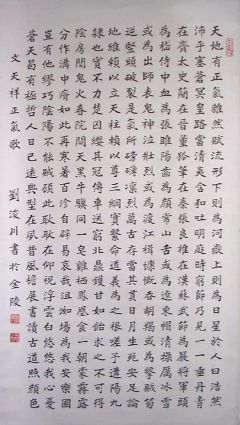 天地有正氣雜然賦流形下則為河嶽上則為日星於人曰浩然
沛乎塞蒼冥皇路當清夷含和吐明庭時窮節乃見一一垂丹青
在齊太史簡在晉董狐筆在秦張良椎在漢蘇武節為嚴將軍頭
為嵇侍中血為張睢陽齒為顏常山舌或為遼東帽清操厲冰雪
或為出師表鬼神泣壯烈或為渡江楫慷慨吞胡羯或為擊賊笏
逆豎頭破裂是氣所磅礴凜烈萬古存當其貫日月生死安足論
地維賴以立天柱賴以尊三綱實繫命道義為之根嗟予遘陽九
隸也實不力楚囚纓其冠傳車送窮北鼎鑊甘如飴求之不可得
陰房闃鬼火春院閟天黑牛驥同一皂雞棲鳳凰食一朝蒙霧露
分作溝中瘠如此再寒暑百沴自辟易哀哉沮洳場為我安樂國
豈有他繆巧陰陽不能賊顧此耿耿在仰視浮雲白悠悠我心憂
蒼天曷有極哲人日已遠典型在夙昔風檐展書讀古道照顏色
文天祥正氣歌 劉浚川書於金陵